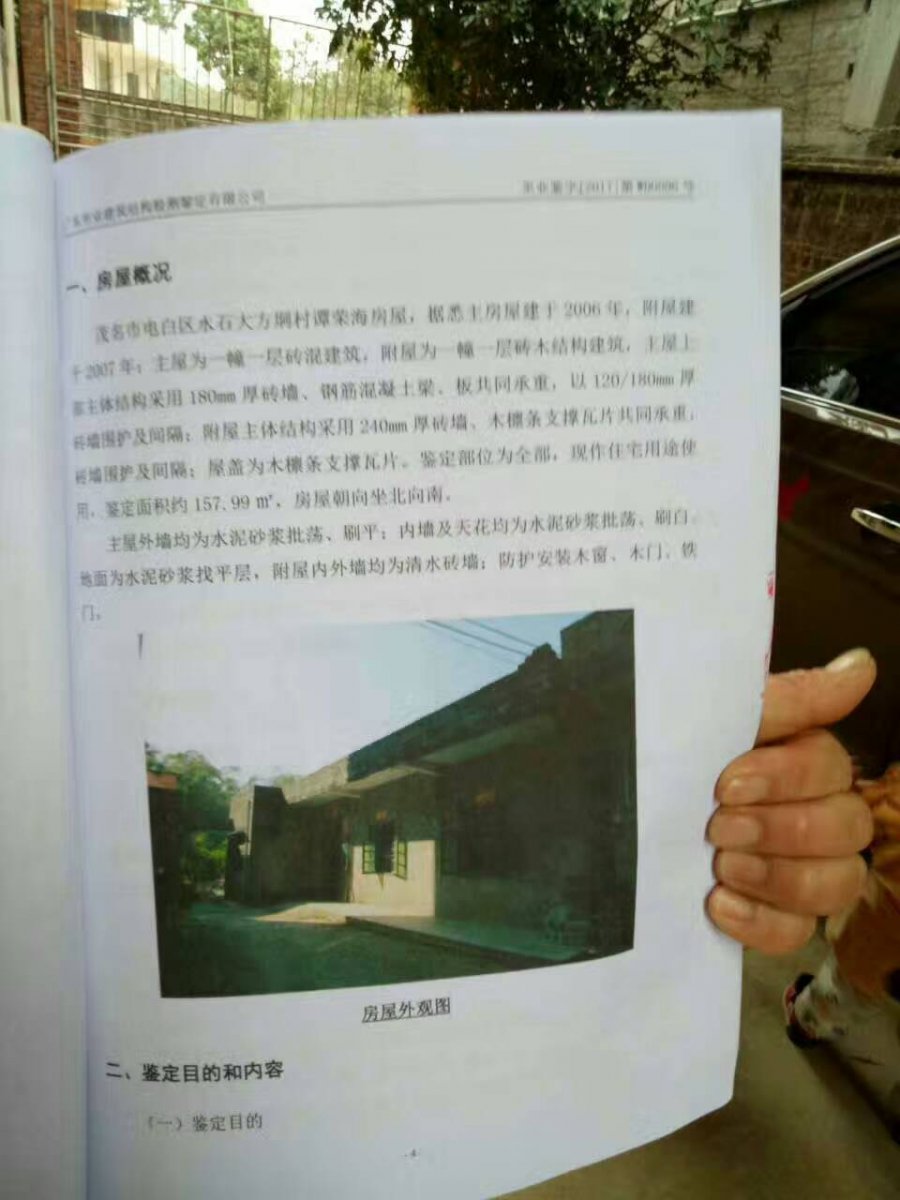 建筑结构检测鉴定有限公司
鉴字[2017]第
一、房屋概况
茂名市电白区水石大方垌村谭荣海房屋，据悉主房屋建于2006年，附屋建
于2007年；主屋为一幢一层砖混建筑，附屋为一幢一层砖木结构建筑，主屋上
部主体结构采用180mm厚砖墙、钢筋混凝土梁、板共同承重，以120/180mm厚
砖墙围护及间隔；附屋主体结构采用240mm厚砖墙、木檩条支撑瓦片共同承重，
砖墙围护及间隔；屋盖为木檩条支撑瓦片。鉴定部位为全部，现作住宅用途使
用，鉴定面积约157.99㎡，房屋朝向坐北向南。
主屋外墙均为水泥砂浆批荡、刷平；内墙及天花均为水泥砂浆批荡、刷白，
地面为水泥砂浆找平层，附屋内外墙均为清水砖墙；防护安装木窗、木门、铁
门。
房屋外观图
二、鉴定目的和内容
（一）鉴定目的
- 4